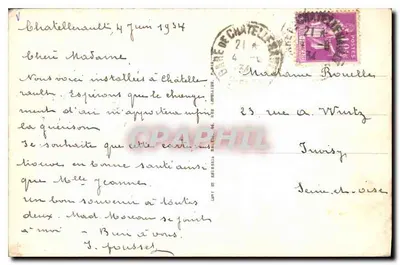 Chatellerault, 4 Juin 1934
Chère Madame,
Nous voici installées à Châtelle
rault. Espérons que le change
ment d'air m'apportera enfin
la guérison
Je souhaite que cette carte vs
trouve en bonne santé ainsi
que Mlle Jeanne.
Un bon souvenir à toutes
deux. Mad. Moreau se joint
à moi - Bien à vous.
J. Pousset
GARE DE CHATELLERAULT
21
4 - 6
34
Madame Rouelles
23 rue a Wurtz
Juvisy
Seine-et-Oise
CPARAMA